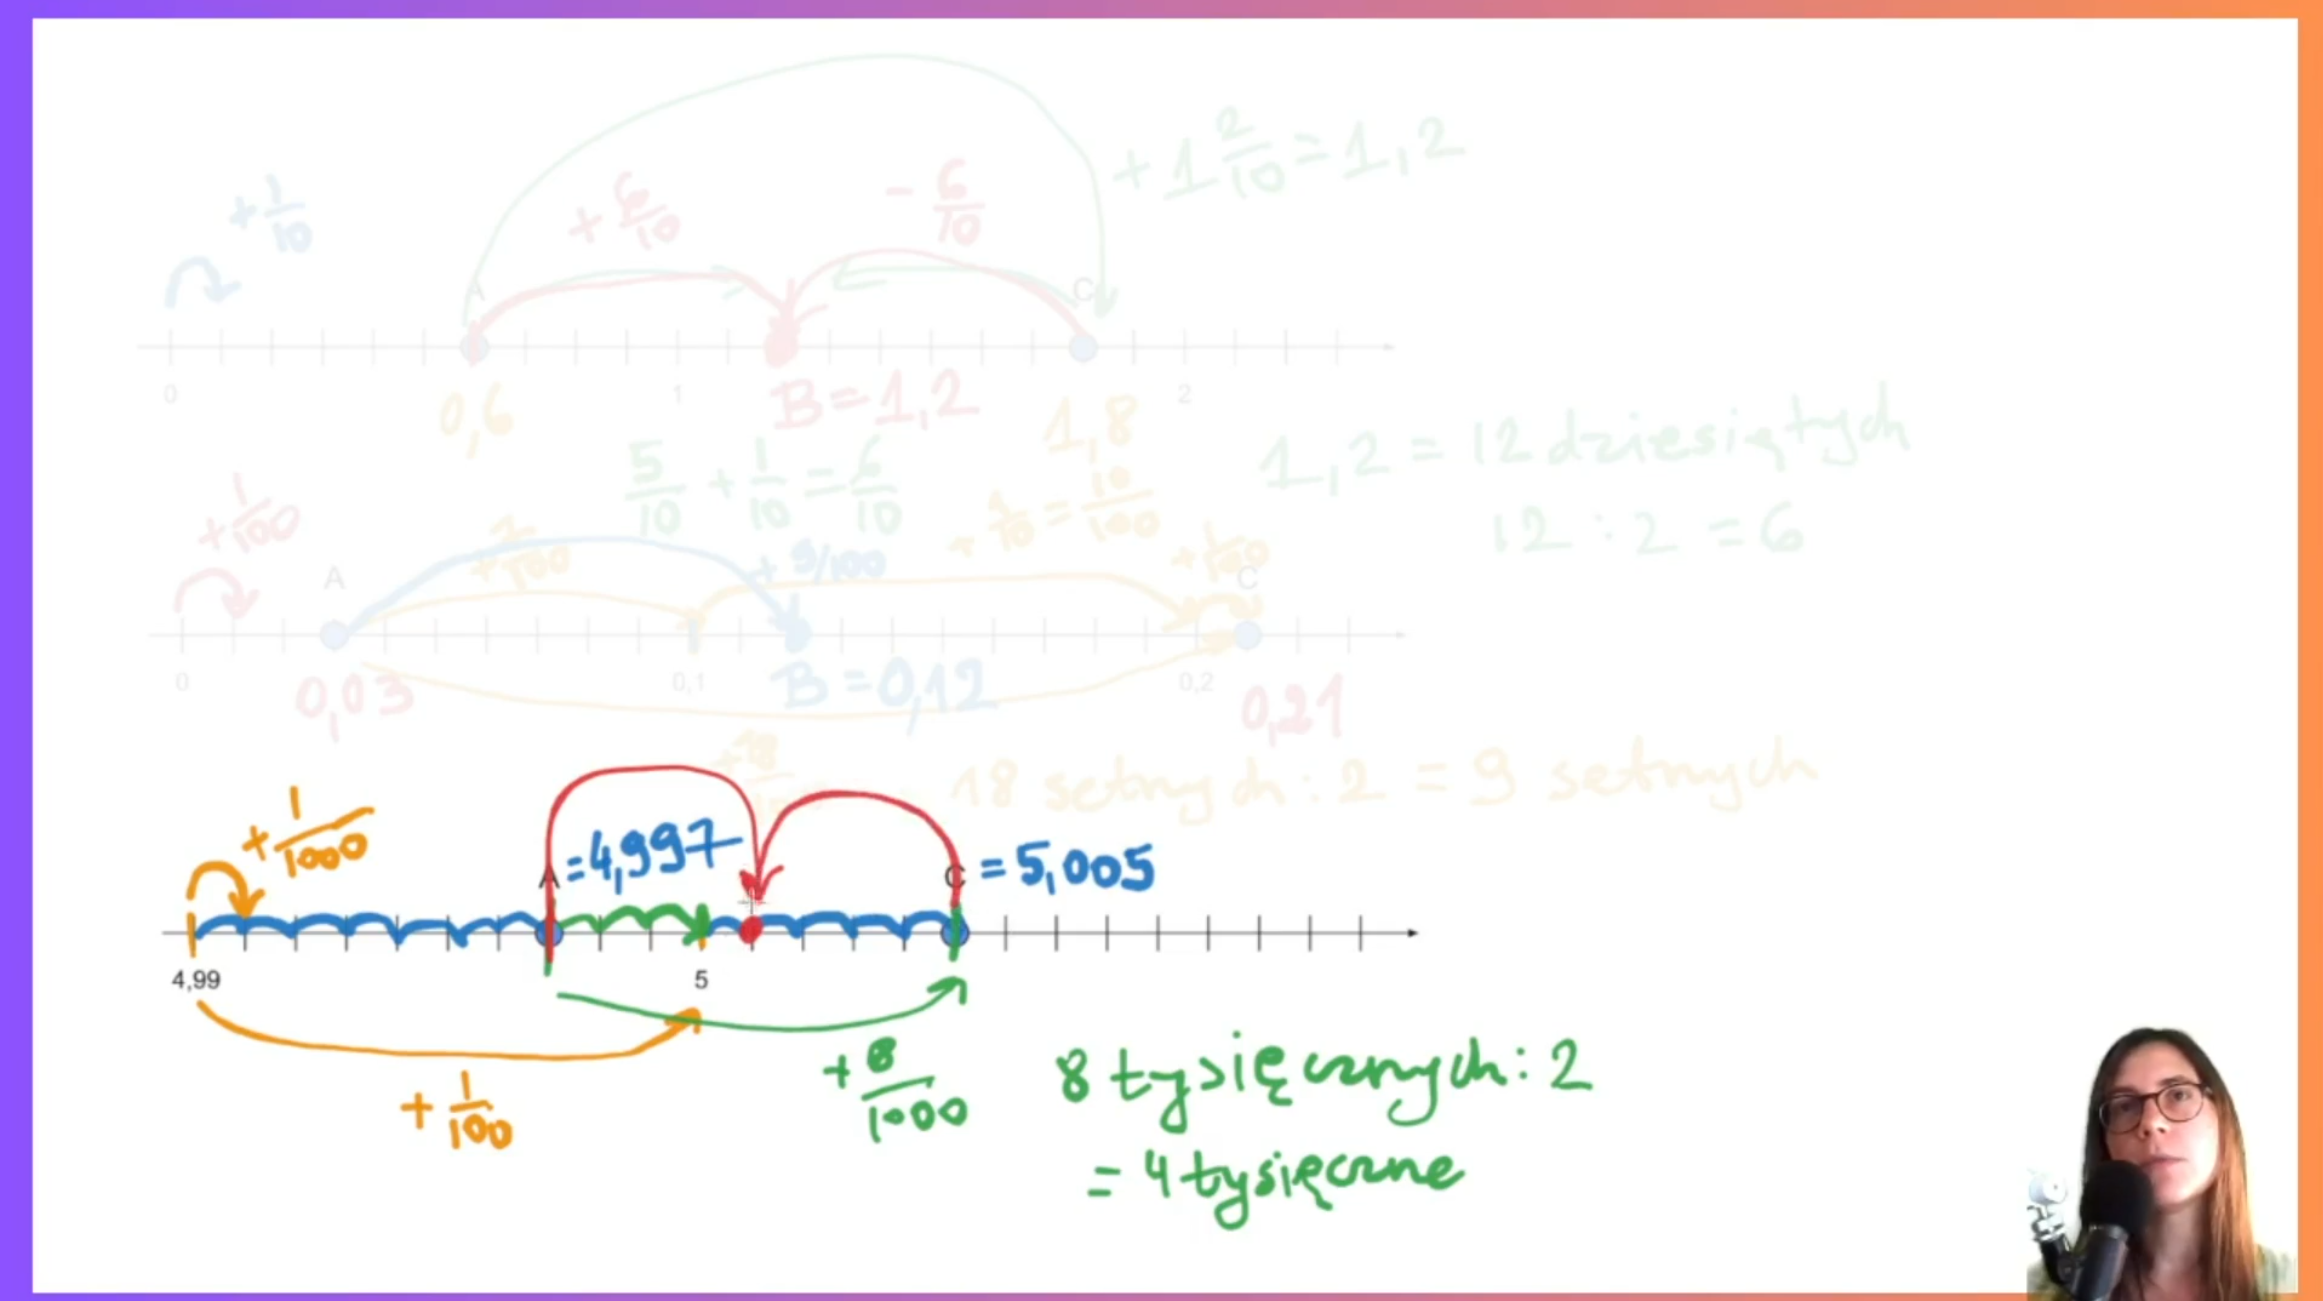 + 1 2/10 = 1,2
+ 1/10
+ 6/10
- 6/10
A
C
0
1
2
0,6
B = 1,2
1,8
1,2 = 12 dziesiątych
5/10 + 1/10 = 6/10
12 : 2 = 6
+ 1/100
+ 7/100
+ 9/100
+ 1/10 = 10/100
+ 1/100
A
C
0
0,1
0,2
0,03
B = 0,12
0,21
18 setnych : 2 = 9 setnych
+ 1/1000
A = 4,997
C = 5,005
4,99
5
+ 1/100
+ 8/1000
8 tysięcznych : 2
= 4 tysięczne